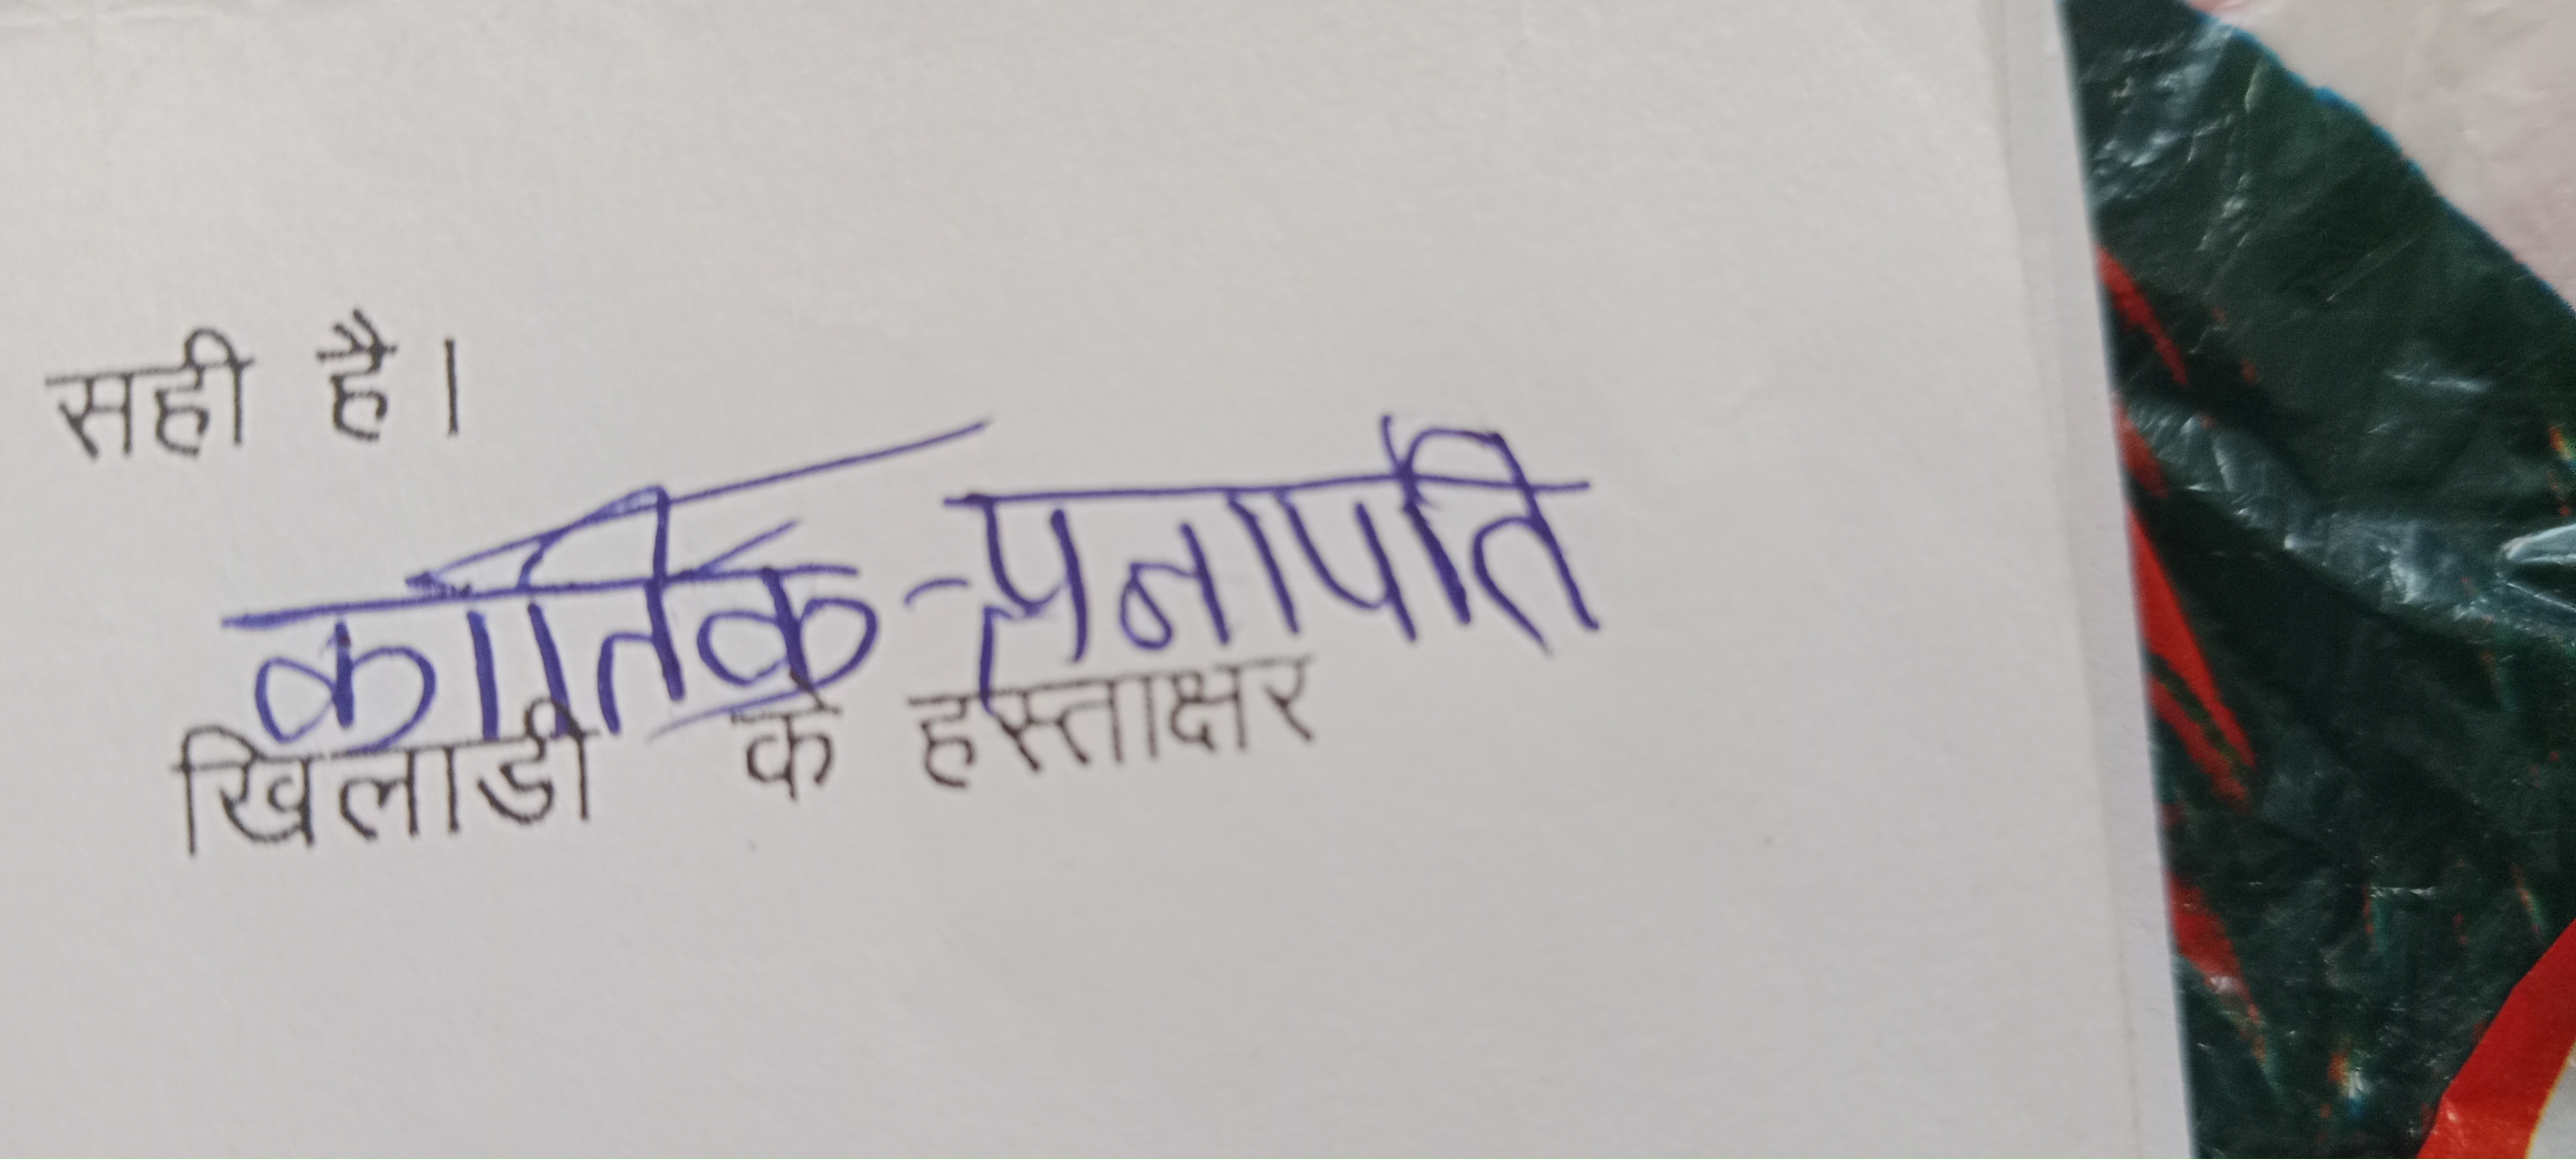 सही है।
कार्तिक प्रजापति
खिलाडी के हस्ताक्षर